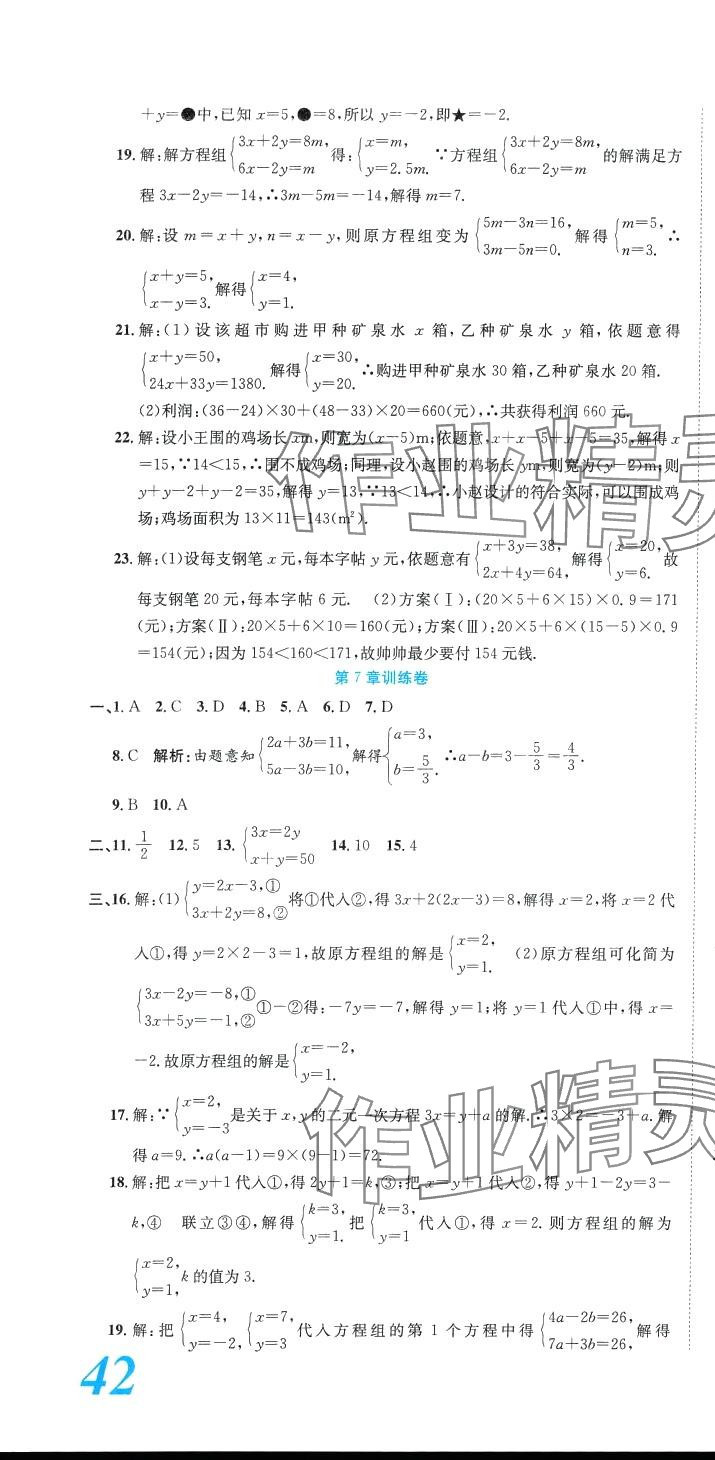 ＋y＝●中,已知 x＝5,●＝8,所以 y＝－2,即★＝－2.
19. 解:解方程组{3x＋2y＝8m, 6x－2y＝m 得:{x＝m, y＝2.5m. ∵方程组{3x＋2y＝8m, 6x－2y＝m 的解满足方
程 3x－2y＝－14,∴3m－5m＝－14,解得 m＝7.
20. 解:设 m＝x＋y,n＝x－y,则原方程组变为{5m－3n＝16, 3m－5n＝0. 解得{m＝5, n＝3. ∴
{x＋y＝5, x－y＝3. 解得{x＝4, y＝1.
21. 解:(1)设该超市购进甲种矿泉水 x 箱,乙种矿泉水 y 箱,依题意得
{x＋y＝50, 24x＋33y＝1380. 解得{x＝30, y＝20. ∴购进甲种矿泉水 30 箱,乙种矿泉水 20 箱.
(2)利润:(36－24)×30＋(48－33)×20＝660(元),∴共获得利润 660 元.
22. 解:设小王围的鸡场长 xm,则宽为(x－5)m;依题意,x＋x－5＋x－5＝35,解得 x
＝15,∵14＜15,∴围不成鸡场;同理,设小赵围的鸡场长 ym,则宽为(y－2)m;则
y＋y－2＋y－2＝35,解得 y＝13,∵13＜14,∴小赵设计的符合实际,可以围成鸡
场;鸡场面积为 13×11＝143(m²).
23. 解:(1)设每支钢笔 x 元,每本字帖 y 元,依题意有{x＋3y＝38, 2x＋4y＝64, 解得{x＝20, y＝6. 故
每支钢笔 20 元,每本字帖 6 元. (2)方案(Ⅰ):(20×5＋6×15)×0.9＝171
(元);方案(Ⅱ):20×5＋6×10＝160(元);方案(Ⅲ):20×5＋6×(15－5)×0.9
＝154(元);因为 154＜160＜171,故帅帅最少要付 154 元钱.
第 7 章训练卷
一、1. A 2. C 3. D 4. B 5. A 6. D 7. D
8. C 解析:由题意知{2a＋3b＝11, 5a－3b＝10, 解得{a＝3, b＝5/3. ∴a－b＝3－5/3＝4/3.
9. B 10. A
二、11. 1/2 12. 5 13. {3x＝2y x＋y＝50 14. 10 15. 4
三、16. 解:(1){y＝2x－3,① 3x＋2y＝8,② 将①代入②,得 3x＋2(2x－3)＝8,解得 x＝2,将 x＝2 代
入①,得 y＝2×2－3＝1,故原方程组的解是{x＝2, y＝1. (2)原方程组可化简为
{3x－2y＝－8,① 3x＋5y＝－1,② ①－②得:－7y＝－7,解得 y＝1;将 y＝1 代入①中,得 x＝
－2.故原方程组的解是{x＝－2, y＝1.
17. 解:∵{x＝2, y＝－3 是关于 x,y 的二元一次方程 3x＝y＋a 的解.∴3×2＝－3＋a.解
得 a＝9.∴a(a－1)＝9×(9－1)＝72.
18. 解:把 x＝y＋1 代入①,得 2y＋1＝k,③;把 x＝y＋1 代入②,得 y＋1－2y＝3－
k,④ 联立③④,解得{k＝3, y＝1. 把{k＝3, y＝1 代入①,得 x＝2. 则方程组的解为
{x＝2, y＝1, k 的值为 3.
19. 解:把{x＝4, y＝－2, {x＝7, y＝3 代入方程组的第 1 个方程中得{4a－2b＝26, 7a＋3b＝26, 解得
42
作业精灵
作业精灵